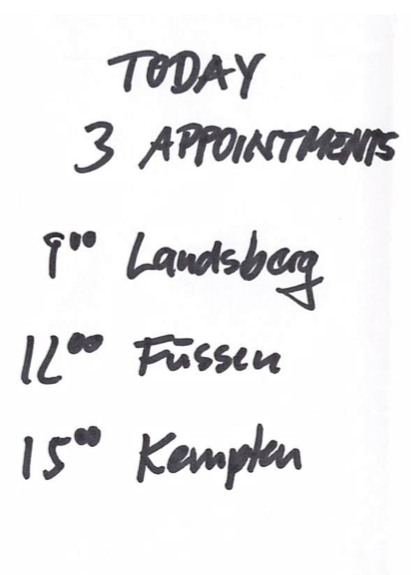 TODAY
3 APPOINTMENTS
9⁰⁰ Landsberg
12⁰⁰ Füssen
15⁰⁰ Kempten